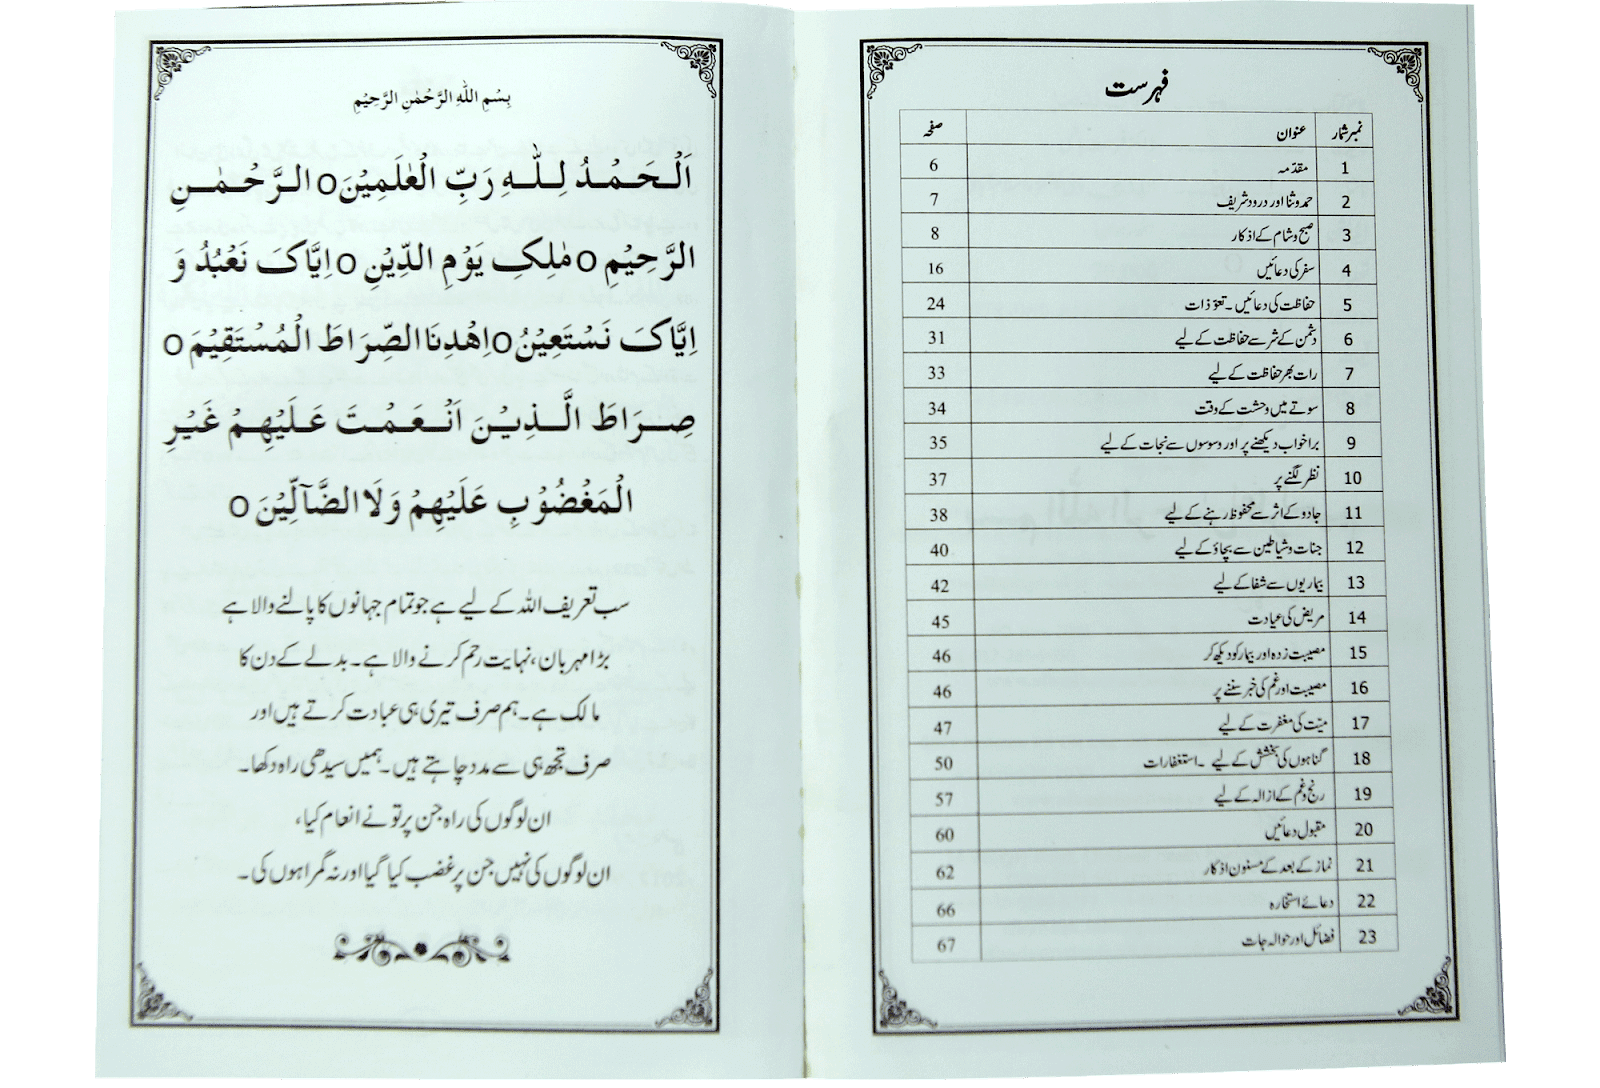 بِسْمِ اللهِ الرَّحْمٰنِ الرَّحِيْمِ
اَلْحَمْدُ لِلّٰهِ رَبِّ الْعٰلَمِيْنَ o الرَّحْمٰنِ
الرَّحِيْمِ o مٰلِکِ يَوْمِ الدِّيْنِ o اِيَّاکَ نَعْبُدُ وَ
اِيَّاکَ نَسْتَعِيْنُ o اِهْدِنَا الصِّرَاطَ الْمُسْتَقِيْمَ o
صِرَاطَ الَّذِيْنَ اَنْعَمْتَ عَلَيْهِمْ غَيْرِ
الْمَغْضُوْبِ عَلَيْهِمْ وَلَا الضَّآلِّيْنَ o
سب تعریف اللہ کے لیے ہے جو تمام جہانوں کا پالنے والا ہے
بڑا مہربان، نہایت رحم کرنے والا ہے۔ بدلے کے دن کا
مالک ہے۔ ہم صرف تیری ہی عبادت کرتے ہیں اور
صرف تجھ ہی سے مدد چاہتے ہیں۔ ہمیں سیدھی راہ دکھا۔
ان لوگوں کی راہ جن پر تو نے انعام کیا،
ان لوگوں کی نہیں جن پر غضب کیا گیا اور نہ گمراہوں کی۔
فہرست
نمبر شمار عنوان صفحہ
1 مقدّمہ 6
2 حمد و ثنا اور درود شریف 7
3 صبح و شام کے اذکار 8
4 سفر کی دعائیں 16
5 حفاظت کی دعائیں۔ تعوّذات 24
6 دشمن کے شر سے حفاظت کے لیے 31
7 رات بھر حفاظت کے لیے 33
8 سوتے میں وحشت کے وقت 34
9 برا خواب دیکھنے پر اور وسوسوں سے نجات کے لیے 35
10 نظر لگنے پر 37
11 جادو کے اثر سے محفوظ رہنے کے لیے 38
12 جنات و شیاطین سے بچاؤ کے لیے 40
13 بیماریوں سے شفا کے لیے 42
14 مریض کی عیادت 45
15 مصیبت زدہ اور بیمار کو دیکھ کر 46
16 مصیبت اور غم کی خبر سننے پر 46
17 میّت کی مغفرت کے لیے 47
18 گناہوں کی بخشش کے لیے ۔ استغفارات 50
19 رنج و غم کے ازالہ کے لیے 57
20 مقبول دعائیں 60
21 نماز کے بعد کے مسنون اذکار 62
22 دعائے استخارہ 66
23 فضائل اور حوالہ جات 67